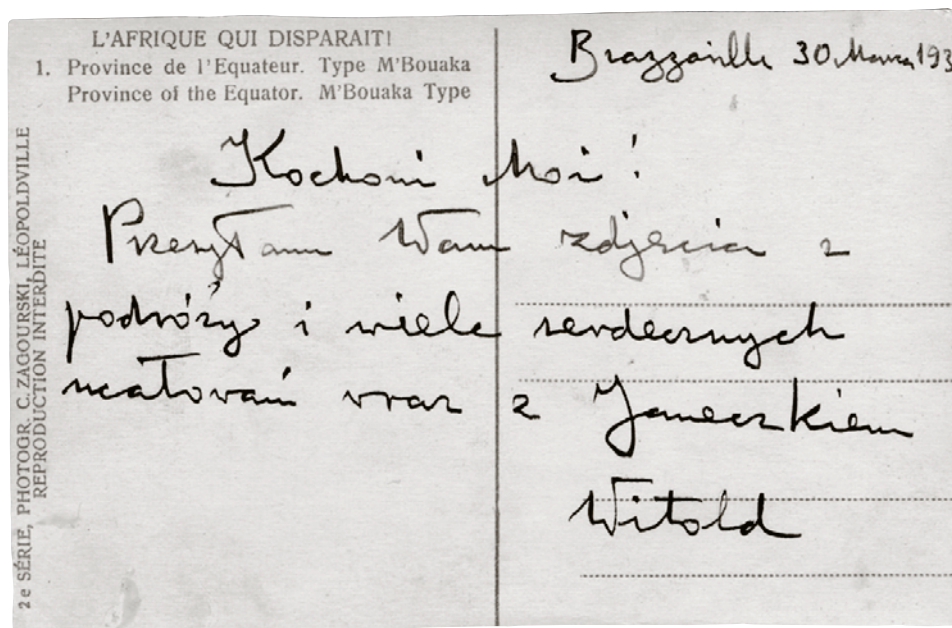 L'AFRIQUE QUI DISPARAIT!
1. Province de l'Equateur. Type M'Bouaka
Province of the Equator. M'Bouaka Type
2e SÉRIE, PHOTOGR. C. ZAGOURSKI, LÉOPOLDVILLE
REPRODUCTION INTERDITE
Brazzaville 30 Marca 193
Kochani Moi!
Przesyłam Wam zdjęcia z
podróży i wiele serdecznych
ucałowań wraz z Janeczkiem
Witold